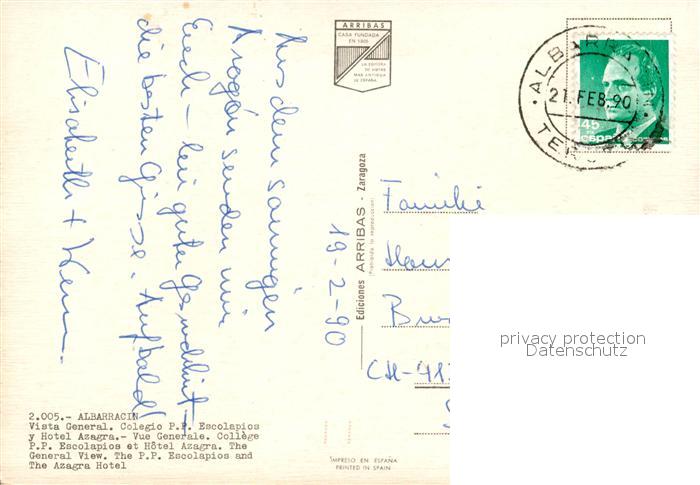 ARRIBAS
CASA FUNDADA
EN 1905
LA EDITORA
DE VISTAS
MAS ANTIGUA
DE ESPAÑA
ALBARRA
21. FEB. 90
TER
45
España
Aus dem sonnigen
Aragón senden wir
Euch – bei guter Gesundheit –
die besten Grüsse. Auf bald!
Elisabeth +
Ediciones ARRIBAS - Zaragoza
(Prohibida la reproducción)
19-2-90
Familie
CH-41
privacy protection
Datenschutz
2.005.- ALBARRACIN
Vista General. Colegio P.P. Escolapios
y Hotel Azagra.- Vue Generale. Collège
P.P. Escolapios et Hôtel Azagra. The
General View. The P.P. Escolapios and
The Azagra Hotel
IMPRESO EN ESPAÑA
PRINTED IN SPAIN